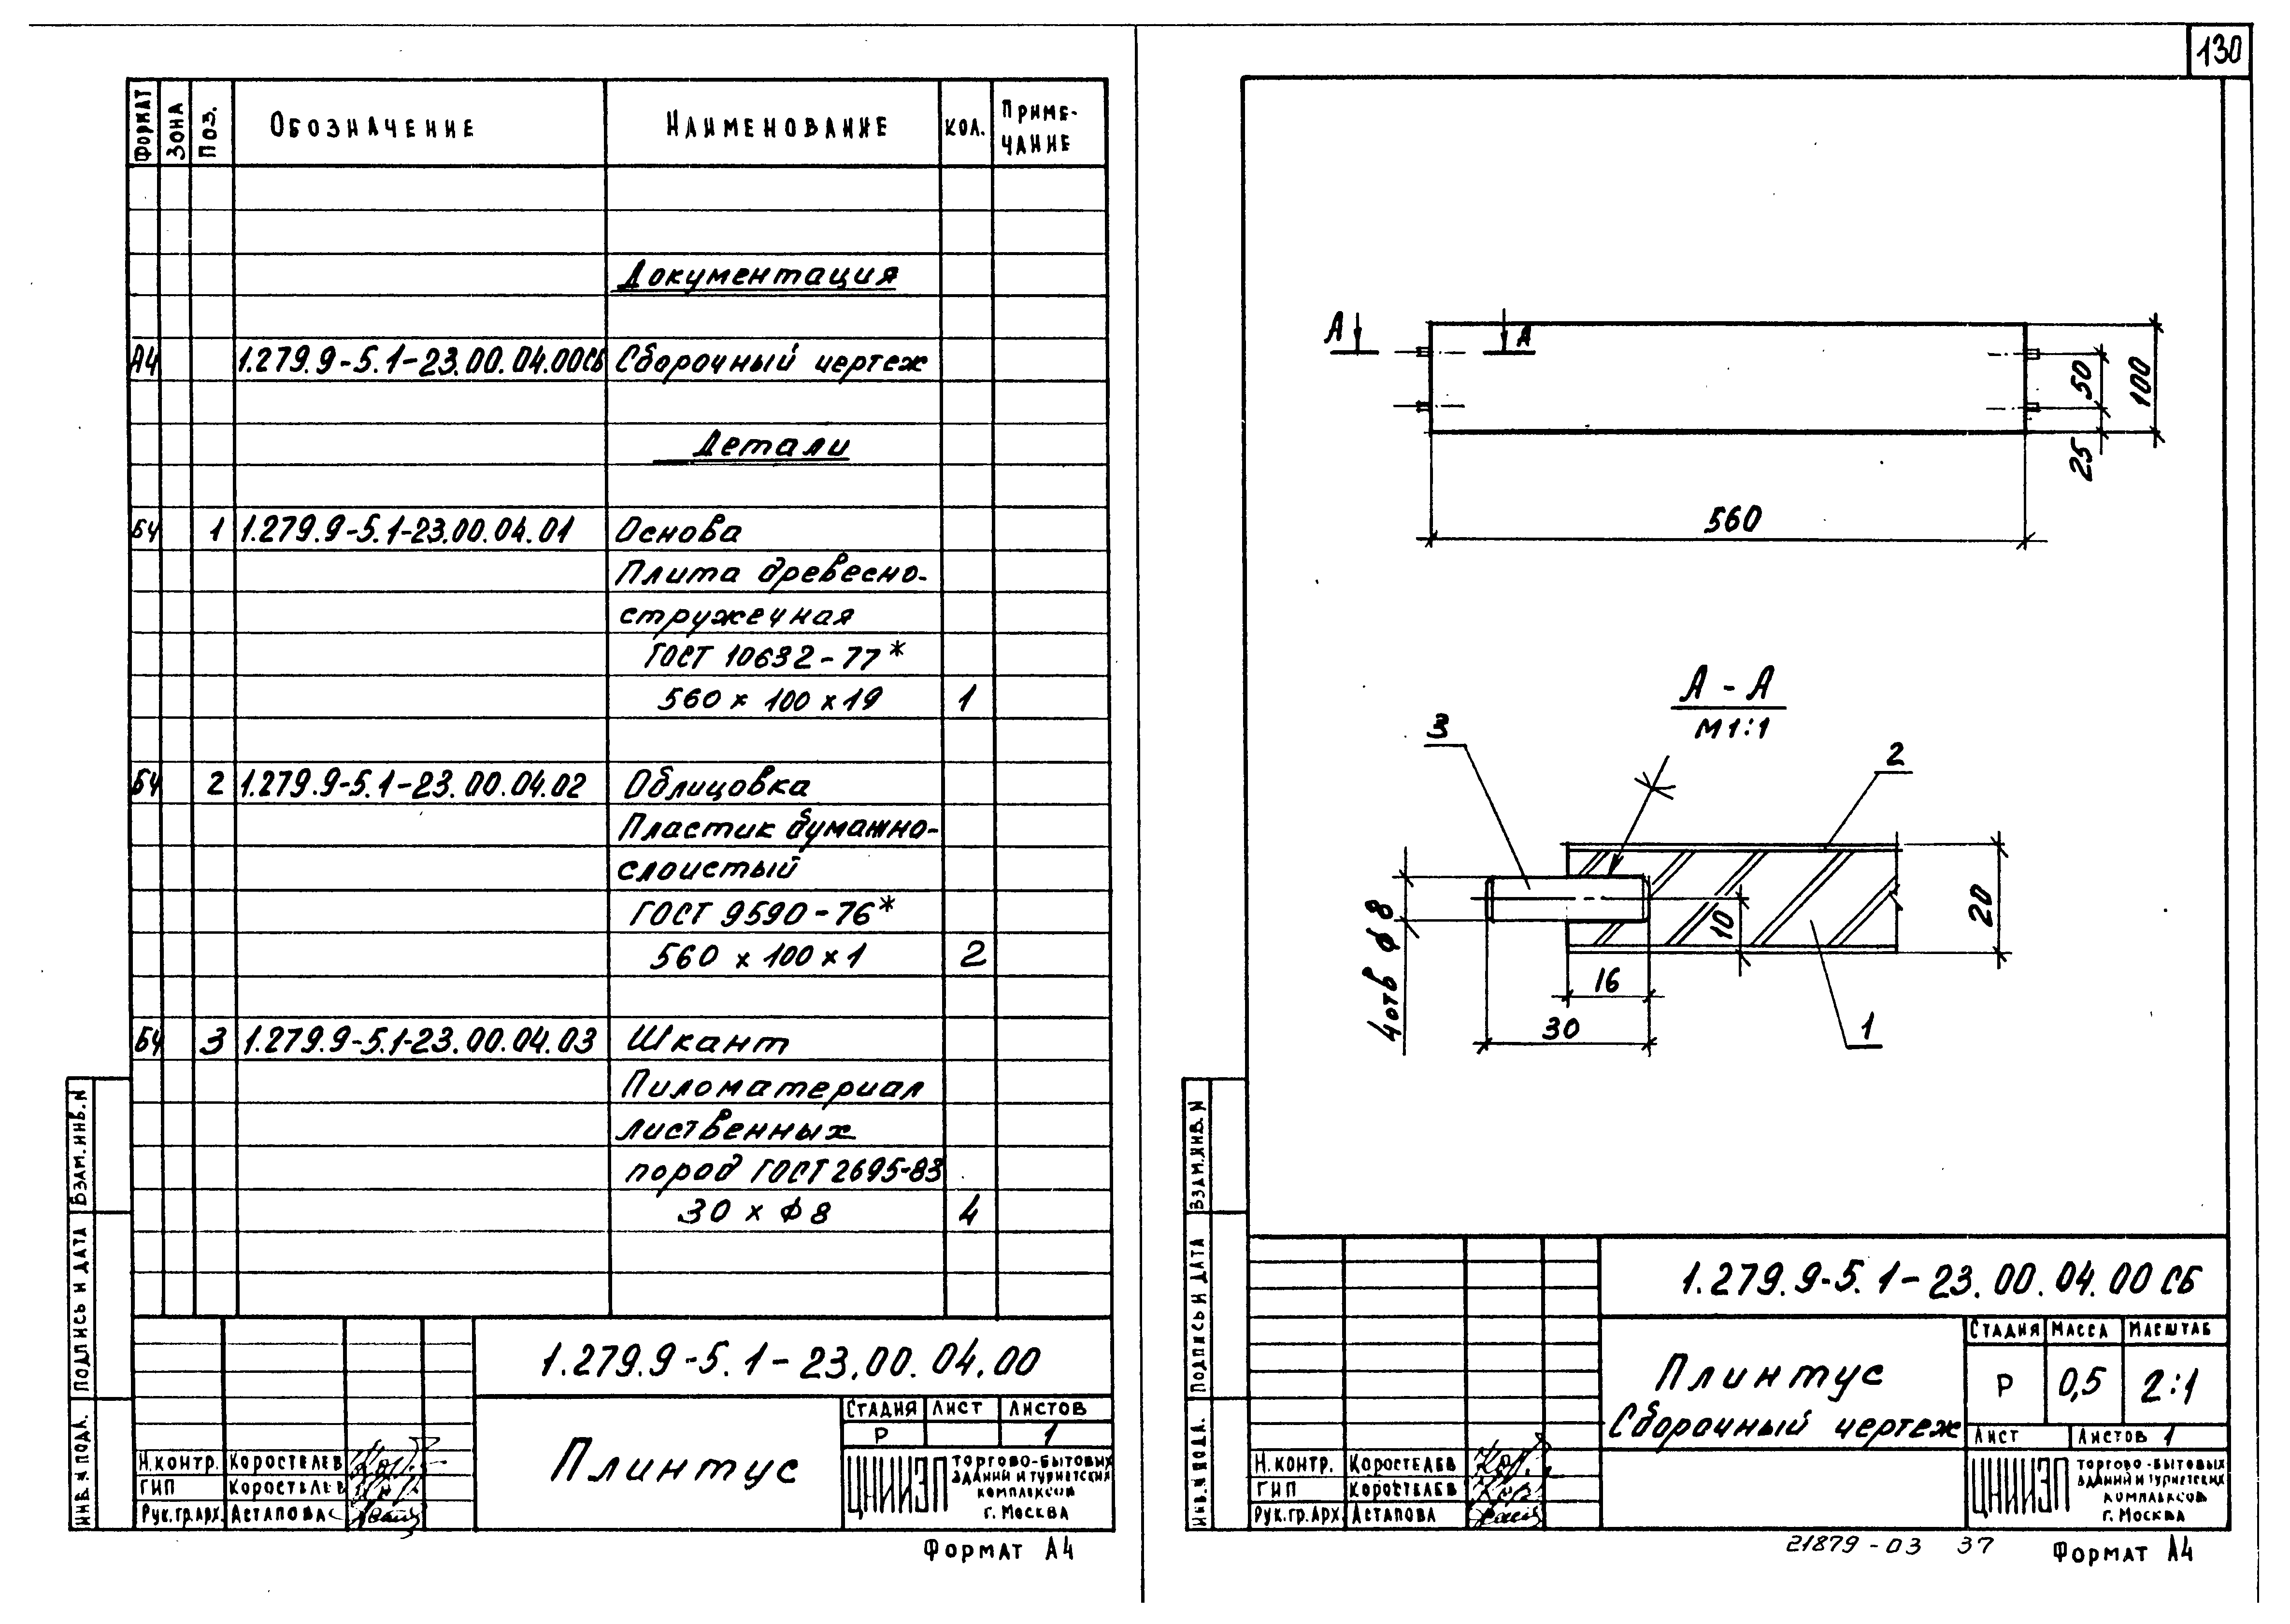 130
ФОРМАТ ЗОНА ПОЗ. ОБОЗНАЧЕНИЕ НАИМЕНОВАНИЕ КОЛ. ПРИМЕ-
ЧАНИЕ
Документация
А4 1.279.9-5.1-23.00.04.00СБ Сборочный чертеж
Детали
БЧ 1 1.279.9-5.1-23.00.04.01 Основа
Плита древесно-
стружечная
ГОСТ 10632-77*
560 х 100 х 19 1
БЧ 2 1.279.9-5.1-23.00.04.02 Облицовка
Пластик бумажно-
слоистый
ГОСТ 9590-76*
560 х 100 х 1 2
БЧ 3 1.279.9-5.1-23.00.04.03 Шкант
Пиломатериал
лиственных
пород ГОСТ 2695-83
30 х ф 8 4
ВЗАМ.ИНВ.N
ПОДПИСЬ И ДАТА
ИНВ.N ПОДЛ.
1.279.9-5.1-23.00.04.00
Плинтус
СТАДИЯ ЛИСТ ЛИСТОВ
Р 1
Н.КОНТР. КОРОСТЕЛЕВ
ГИП КОРОСТЕЛЕВ
РУК.ГР.АРХ. АСТАПОВА
ЦНИИЭП
ТОРГОВО-БЫТОВЫХ
ЗДАНИЙ И ТУРИСТСКИХ
КОМПЛЕКСОВ
Г. МОСКВА
ФОРМАТ А4
А А
50
100
25
560
А - А
М1:1
3
2
4 отв ф 8
10
20
16
30
1
ВЗАМ.ИНВ.N
ПОДПИСЬ И ДАТА
ИНВ.N ПОДЛ.
1.279.9-5.1-23.00.04.00 СБ
Плинтус
Сборочный чертеж
СТАДИЯ МАССА МАСШТАБ
Р 0,5 2:1
ЛИСТ ЛИСТОВ 1
Н.КОНТР. КОРОСТЕЛЕВ
ГИП КОРОСТЕЛЕВ
РУК.ГР.АРХ. АСТАПОВА
ЦНИИЭП
ТОРГОВО-БЫТОВЫХ
ЗДАНИЙ И ТУРИСТСКИХ
КОМПЛЕКСОВ
Г. МОСКВА
21879-03 37
ФОРМАТ А4